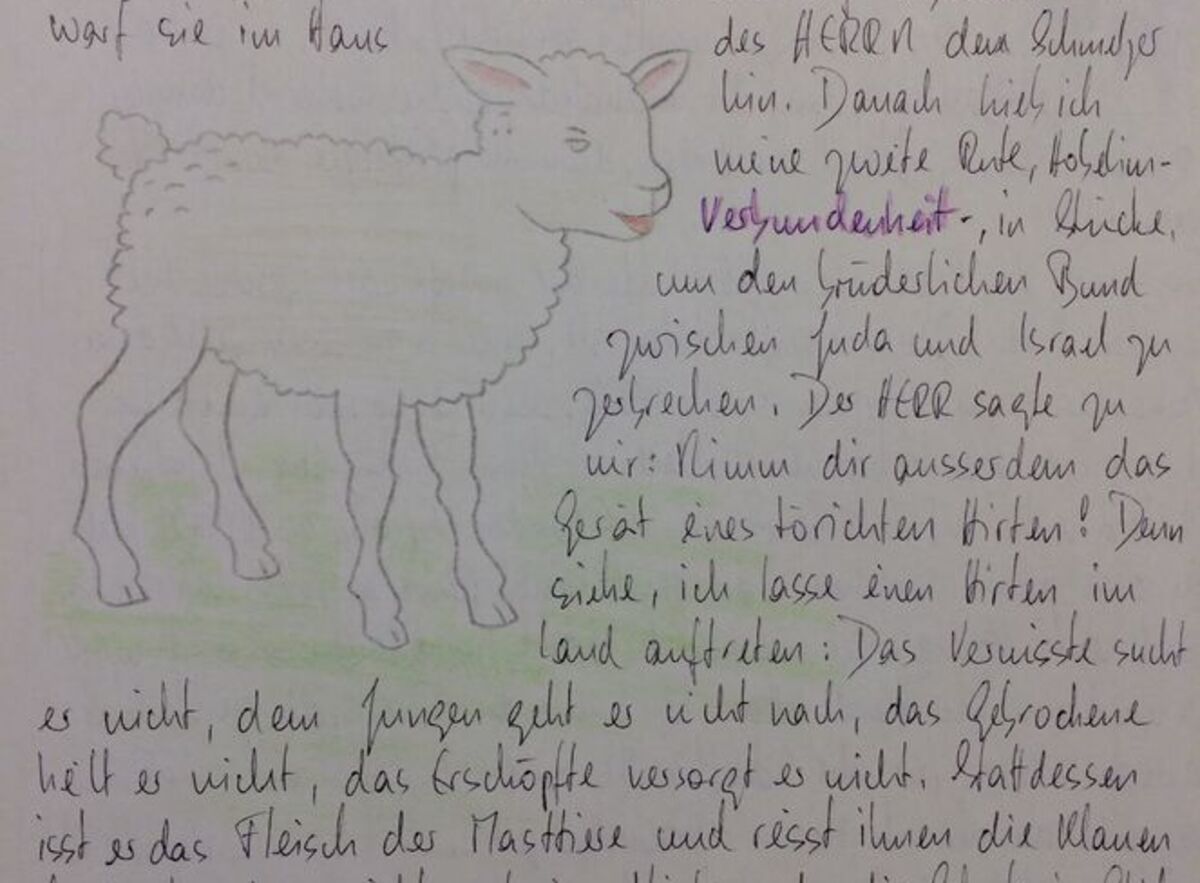 warf sie im Haus des HERRN dem Schmelzer
hin. Danach hieb ich
meine zweite Rute, Hobelim-
Verbundenheit-, in Stücke,
um den brüderlichen Bund
zwischen Juda und Israel zu
zerbrechen. Der HERR sagte zu
mir: Nimm dir ausserdem das
Gerät eines törichten Hirten! Denn
siehe, ich lasse einen Hirten im
Land auftreten: Das Vermisste sucht
er nicht, dem Jungen geht er nicht nach, das Gebrochene
heilt er nicht, das Erschöpfte versorgt er nicht. Stattdessen
isst er das Fleisch der Masttiere und reisst ihnen die Klauen